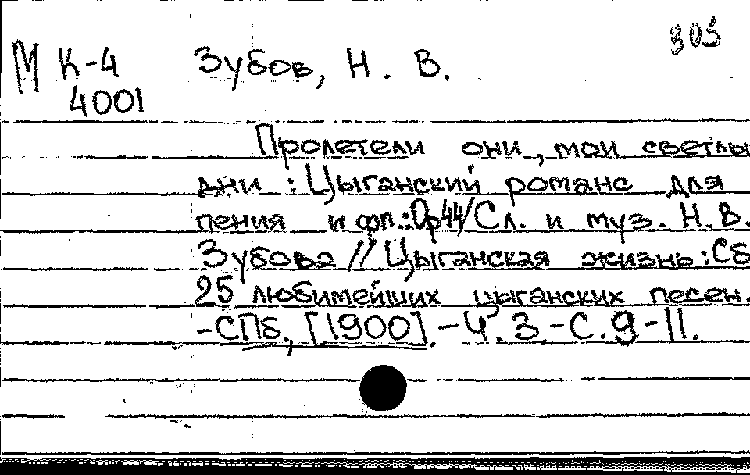 305
М К-4 Зубов, Н. В.
4001
Пролетели они, мои светлы
дни : Цыганский романс для
пения и фп.: Ор44/Сл. и муз. Н.В.
Зубова // Цыганская жизнь: Сб
25 любимейших цыганских песен.
-СПб, [1900]. -Ч. 3. -С. 9-11.